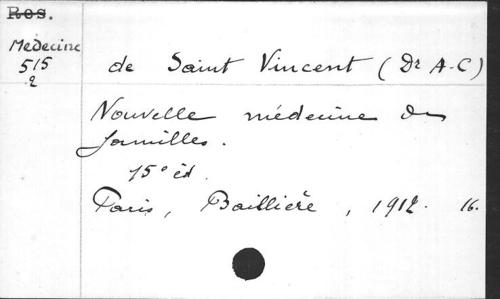 Res.
Medecine
515
2
de Saint Vincent (Dr A-C)
Nouvelle médecine des
familles.
15° éd.
Paris, Baillière, 1912. 16.